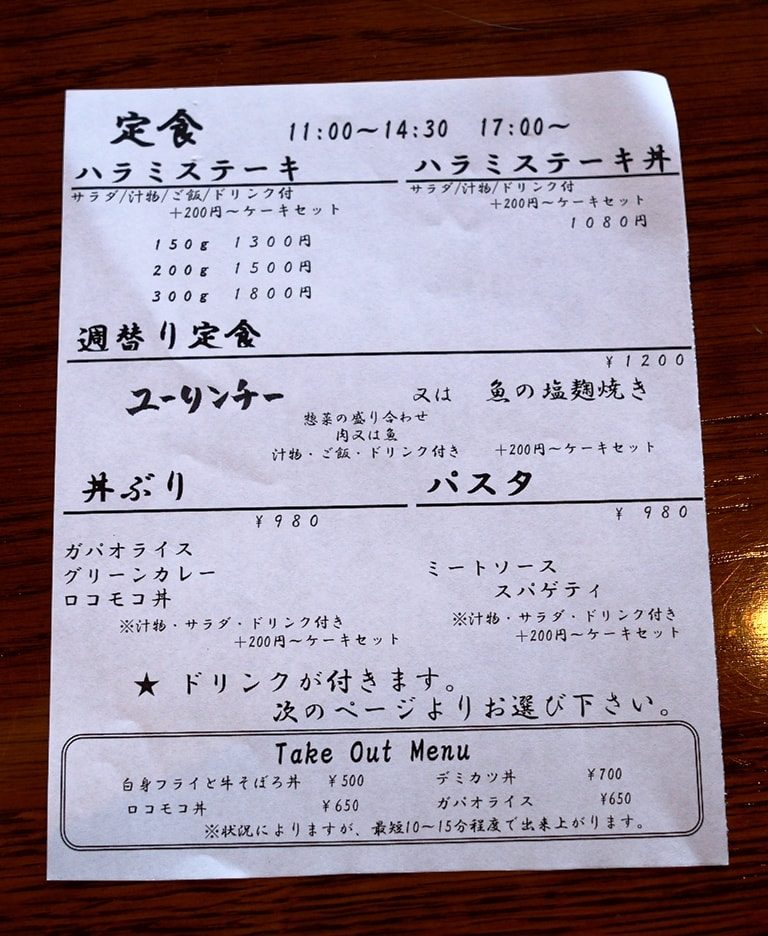 定食 11:00〜14:30 17:00〜
ハラミステーキ
サラダ/汁物/ご飯/ドリンク付
+200円〜ケーキセット
150g 1300円
200g 1500円
300g 1800円
ハラミステーキ丼
サラダ/汁物/ドリンク付
+200円〜ケーキセット
1080円
週替り定食
¥1200
ユーリンチー 又は 魚の塩麹焼き
惣菜の盛り合わせ
肉又は魚
汁物・ご飯・ドリンク付き +200円〜ケーキセット
丼ぶり
¥980
ガパオライス
グリーンカレー
ロコモコ丼
※汁物・サラダ・ドリンク付き
+200円〜ケーキセット
パスタ
¥980
ミートソース
スパゲティ
※汁物・サラダ・ドリンク付き
+200円〜ケーキセット
★ ドリンクが付きます。
次のページよりお選び下さい。
Take Out Menu
白身フライと牛そぼろ丼 ¥500 デミカツ丼 ¥700
ロコモコ丼 ¥650 ガパオライス ¥650
※状況によりますが、最短10〜15分程度で出来上がります。